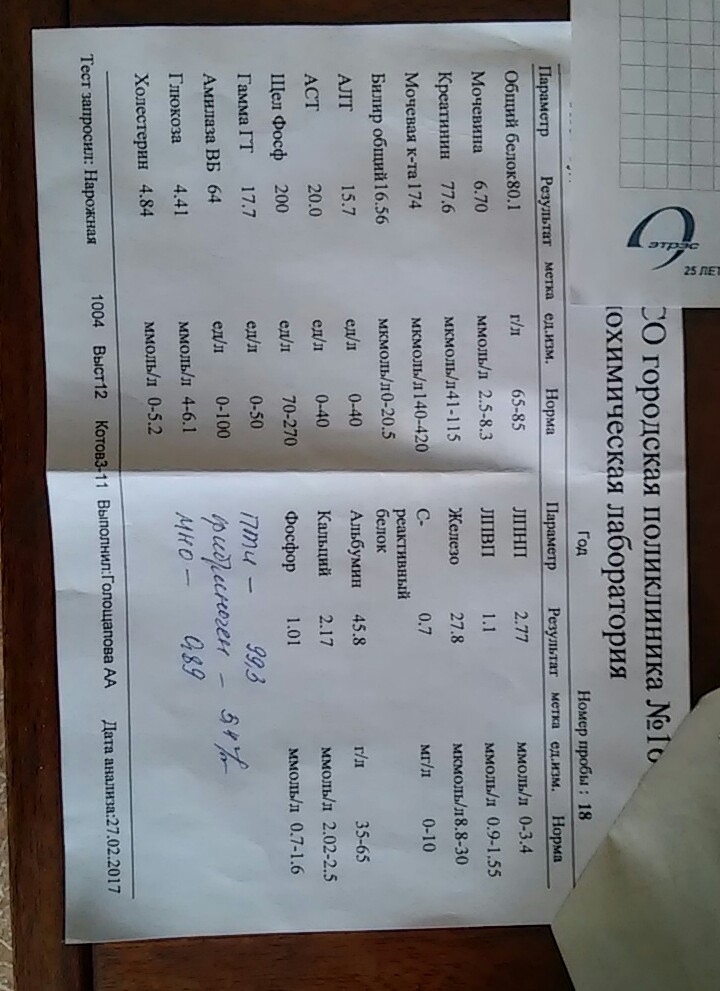 СО городская поликлиника №16
охимическая лаборатория
Год Номер пробы : 18
Параметр Результат метка ед.изм. Норма Параметр Результат метка ед.изм. Норма
Общий белок 80.1 г/л 65-85 ЛПНП 2.77 ммоль/л 0-3.4
Мочевина 6.70 ммоль/л 2.5-8.3 ЛПВП 1.1 ммоль/л 0.9-1.55
Креатинин 77.6 мкмоль/л 41-115 Железо 27.8 мкмоль/л 8.8-30
Мочевая к-та 174 мкмоль/л 140-420 С-реактивный белок 0.7 мг/л 0-10
Билир общий 16.56 мкмоль/л 0-20.5
АЛТ 15.7 ед/л 0-40 Альбумин 45.8 г/л 35-65
АСТ 20.0 ед/л 0-40 Кальций 2.17 ммоль/л 2.02-2.5
Щел Фосф 200 ед/л 70-270 Фосфор 1.01 ммоль/л 0.7-1.6
Гамма ГТ 17.7 ед/л 0-50
Амилаза ВБ 64 ед/л 0-100
Глюкоза 4.41 ммоль/л 4-6.1
Холестерин 4.84 ммоль/л 0-5.2
ПТИ - 99,3
фибриноген -
МНО - 0,89
Тест запросил: Нарожная 1004 Выст12 Котов3-11 Выполнил:Голощапова АА Дата анализа:27.02.2017
этрэс
25 ЛЕТ